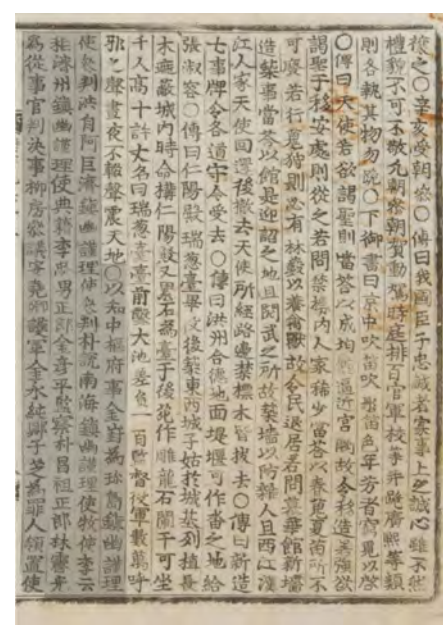 授之○辛亥受朝參○傳曰我國臣子忠誠者寡事上之誠心雖不然
禮貌不可不敬凡朝參朝賀動駕時庭排百官軍校等幷毗廣熙等類
則各執其物勿脫○下御書曰京中吹笛吹觱篥色年少者寫覓以啓
○傳曰天使若欲謁聖則當答以成均館逼近宮闕故令移造若強欲
謁聖于移安處則從之若問禁場內人家稀少當答以春蒐夏苗所不
可廢若行蒐狩則必有林藪以養禽獸故令民退居若問慕華館新墻
造築事當答以館是迎詔之地且閱武之所故築墻以防雜人且西江漢
江人家天使回還後撤去天使所經路邊禁標木皆拔去○傳曰新造
七事牌令各道守令受去○傳曰洪州合德地面堤堰可作畓之地給
張淑容○傳曰仁陽殿瑞葱臺畢役後築東西城子姑於城基列植長
木遮蔽城內時命搆仁陽殿又累石爲臺于後苑作雕龍石闌干可坐
千人高十許丈名曰瑞葱臺臺前鑿大池差官一百監督役軍數萬呼
邪之聲晝夜不輟聲震天地○以知中樞府事金對爲珍島鎭幽謹理
使參判洪自阿巨濟鎭幽謹理使參判朴說南海鎭幽謹理使牧使李云
秬濟州鎭幽謹理使典籍李思男正郞金彥平監察朴昌祖正郞林霽光
爲從事官判決事柳房護軍安堯卿護軍金永純鄭子芝爲罪人領置使